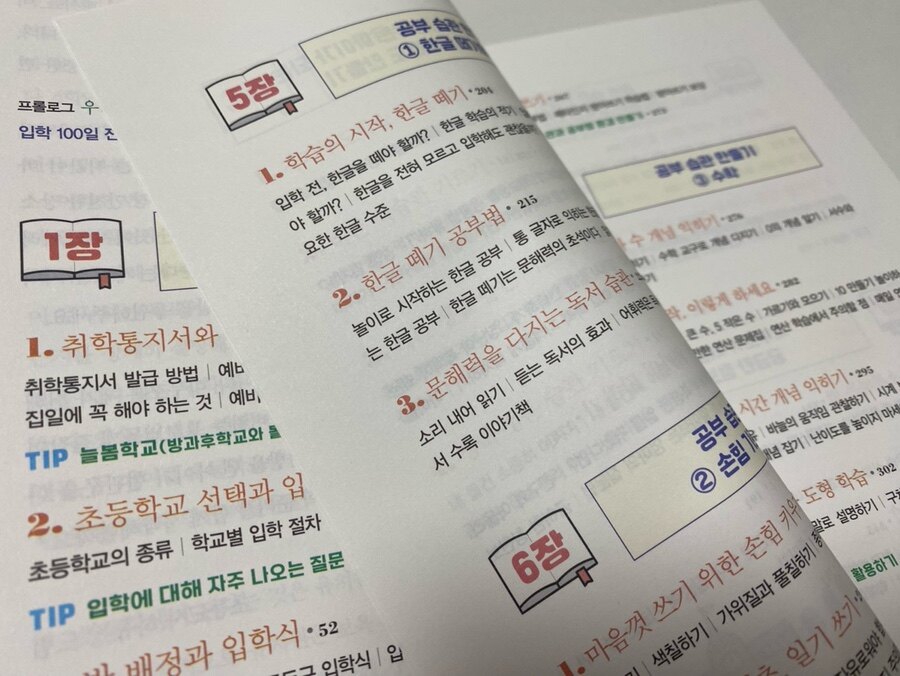 프롤로그 우
입학 100일 전
1장
1. 취학통지서와
취학통지서 발급 방법 | 예비
집일에 꼭 해야 하는 것 | 예비
TIP 늘봄학교(방과후학교와 돌
2. 초등학교 선택과 입
초등학교의 종류 | 학교별 입학 절차
TIP 입학에 대해 자주 나오는 질문
반 배정과 입학식 • 52
입학식 | 입
5장
공부 습관
① 한글 떼기
1. 학습의 시작, 한글 떼기 • 204
입학 전, 한글을 떼야 할까? | 한글 학습의 적기
야 할까? | 한글을 전혀 모르고 입학해도 괜찮을까
요한 한글 수준
2. 한글 떼기 공부법 • 215
놀이로 시작하는 한글 공부 | 통 글자로 익히는 한
는 한글 공부 | 한글 떼기는 문해력의 초석이다
3. 문해력을 다지는 독서 습관
소리 내어 읽기 | 듣는 독서의 효과 | 어휘력은
서 수록 이야기책
6장
공부 습
② 손힘
1. 마음껏 쓰기 위한 손힘 키우
색칠하기 | 가위질과 풀칠하기
일기 쓰기
공부 습관 만들기
③ 수학
수 개념 익히기 • 276
수학 교구로 개념 다지기 | 0의 개념 알기 | 서수와
이렇게 하세요 • 282
큰 수, 5 작은 수 | 가르기와 모으기 | 10 만들기 놀이하
연산 문제집 | 연산 학습에서 주의할 점 | 매일 연
시간 개념 익히기 • 295
바늘의 움직임 관찰하기 | 시계
개념 잡기 | 난이도를 높이지 마세
도형 학습 • 302
말로 설명하기 | 구
활용하기